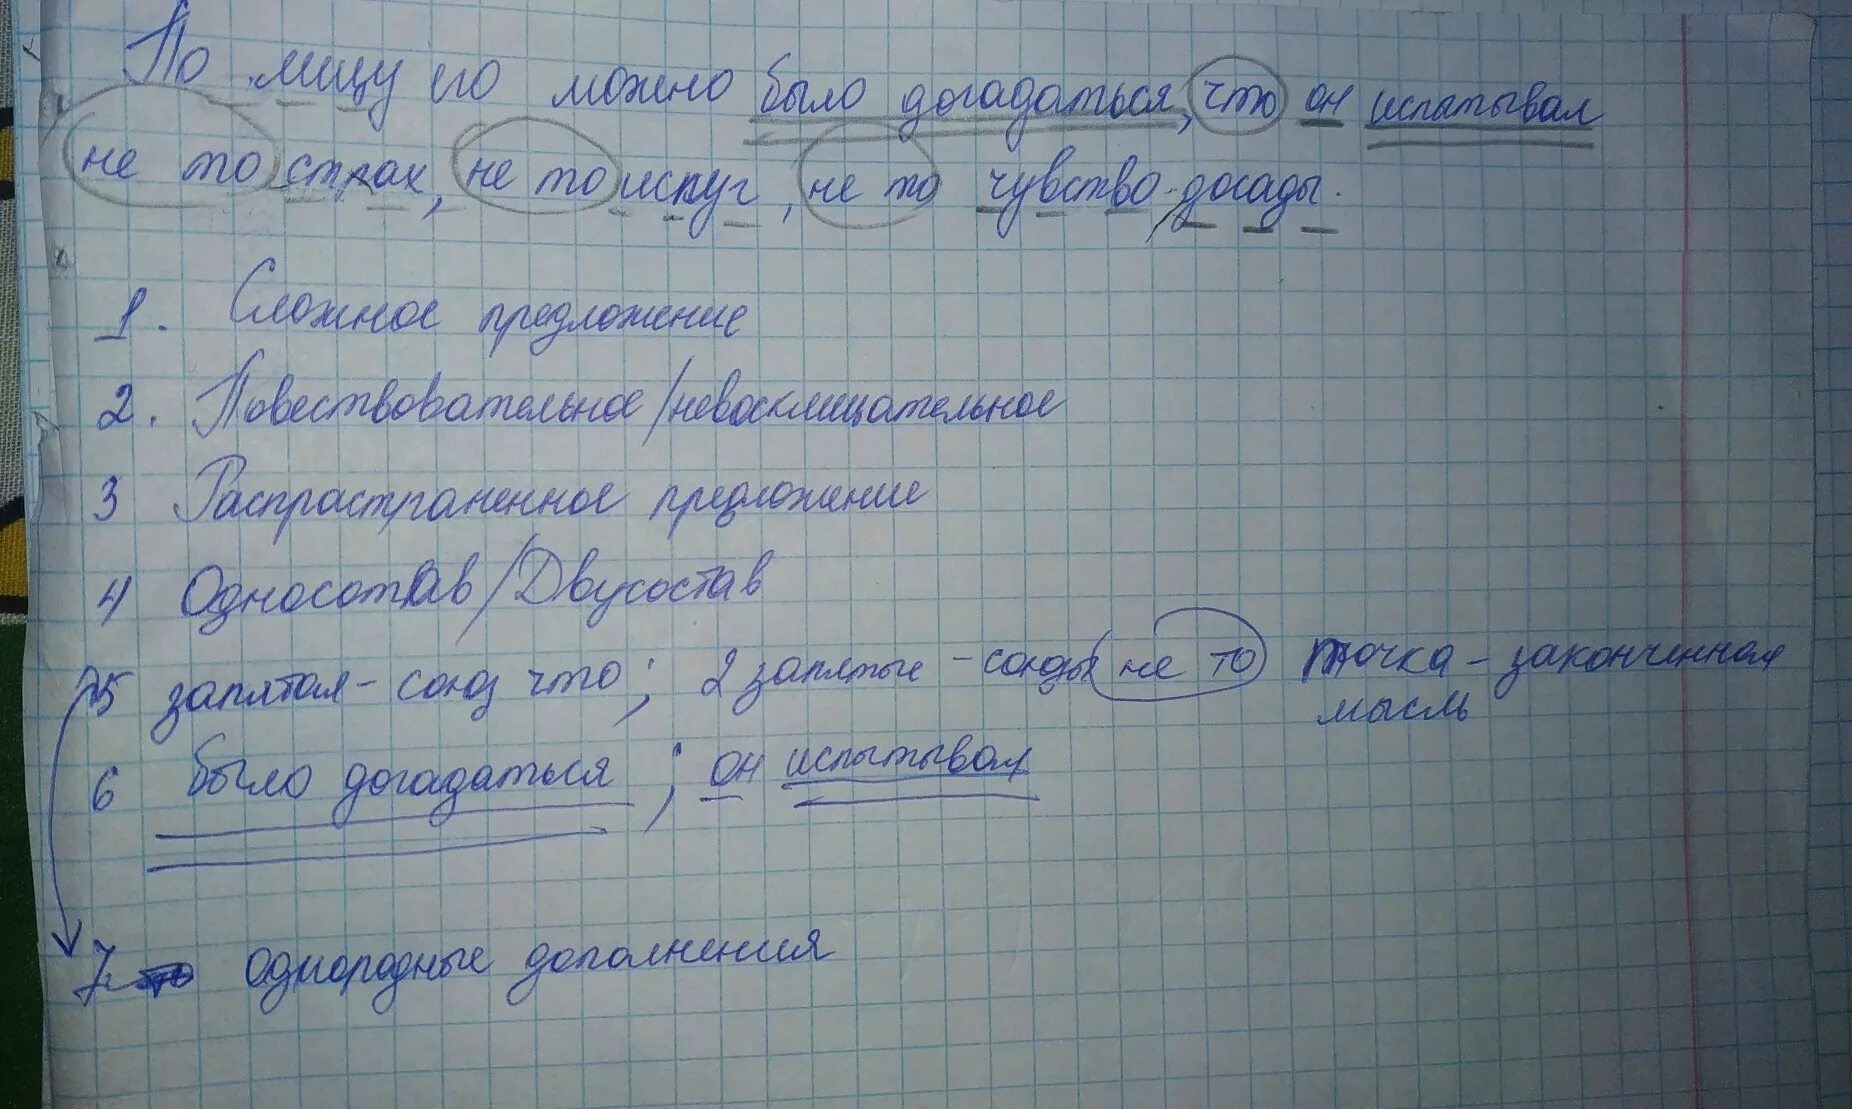 По лицу его можно было догадаться, что он испытывал
не то страх, не то испуг, не то чувство досады.
1. Сложное предложение
2. Повествовательное/невосклицательное
3 Распрастраненное предложение
4 Односотав/Двусостав
5 запятая - союз что; 2 запятые - союзы не то точка - законченная
мысль
6 было догадаться; он испытывал
7. однородные дополнения